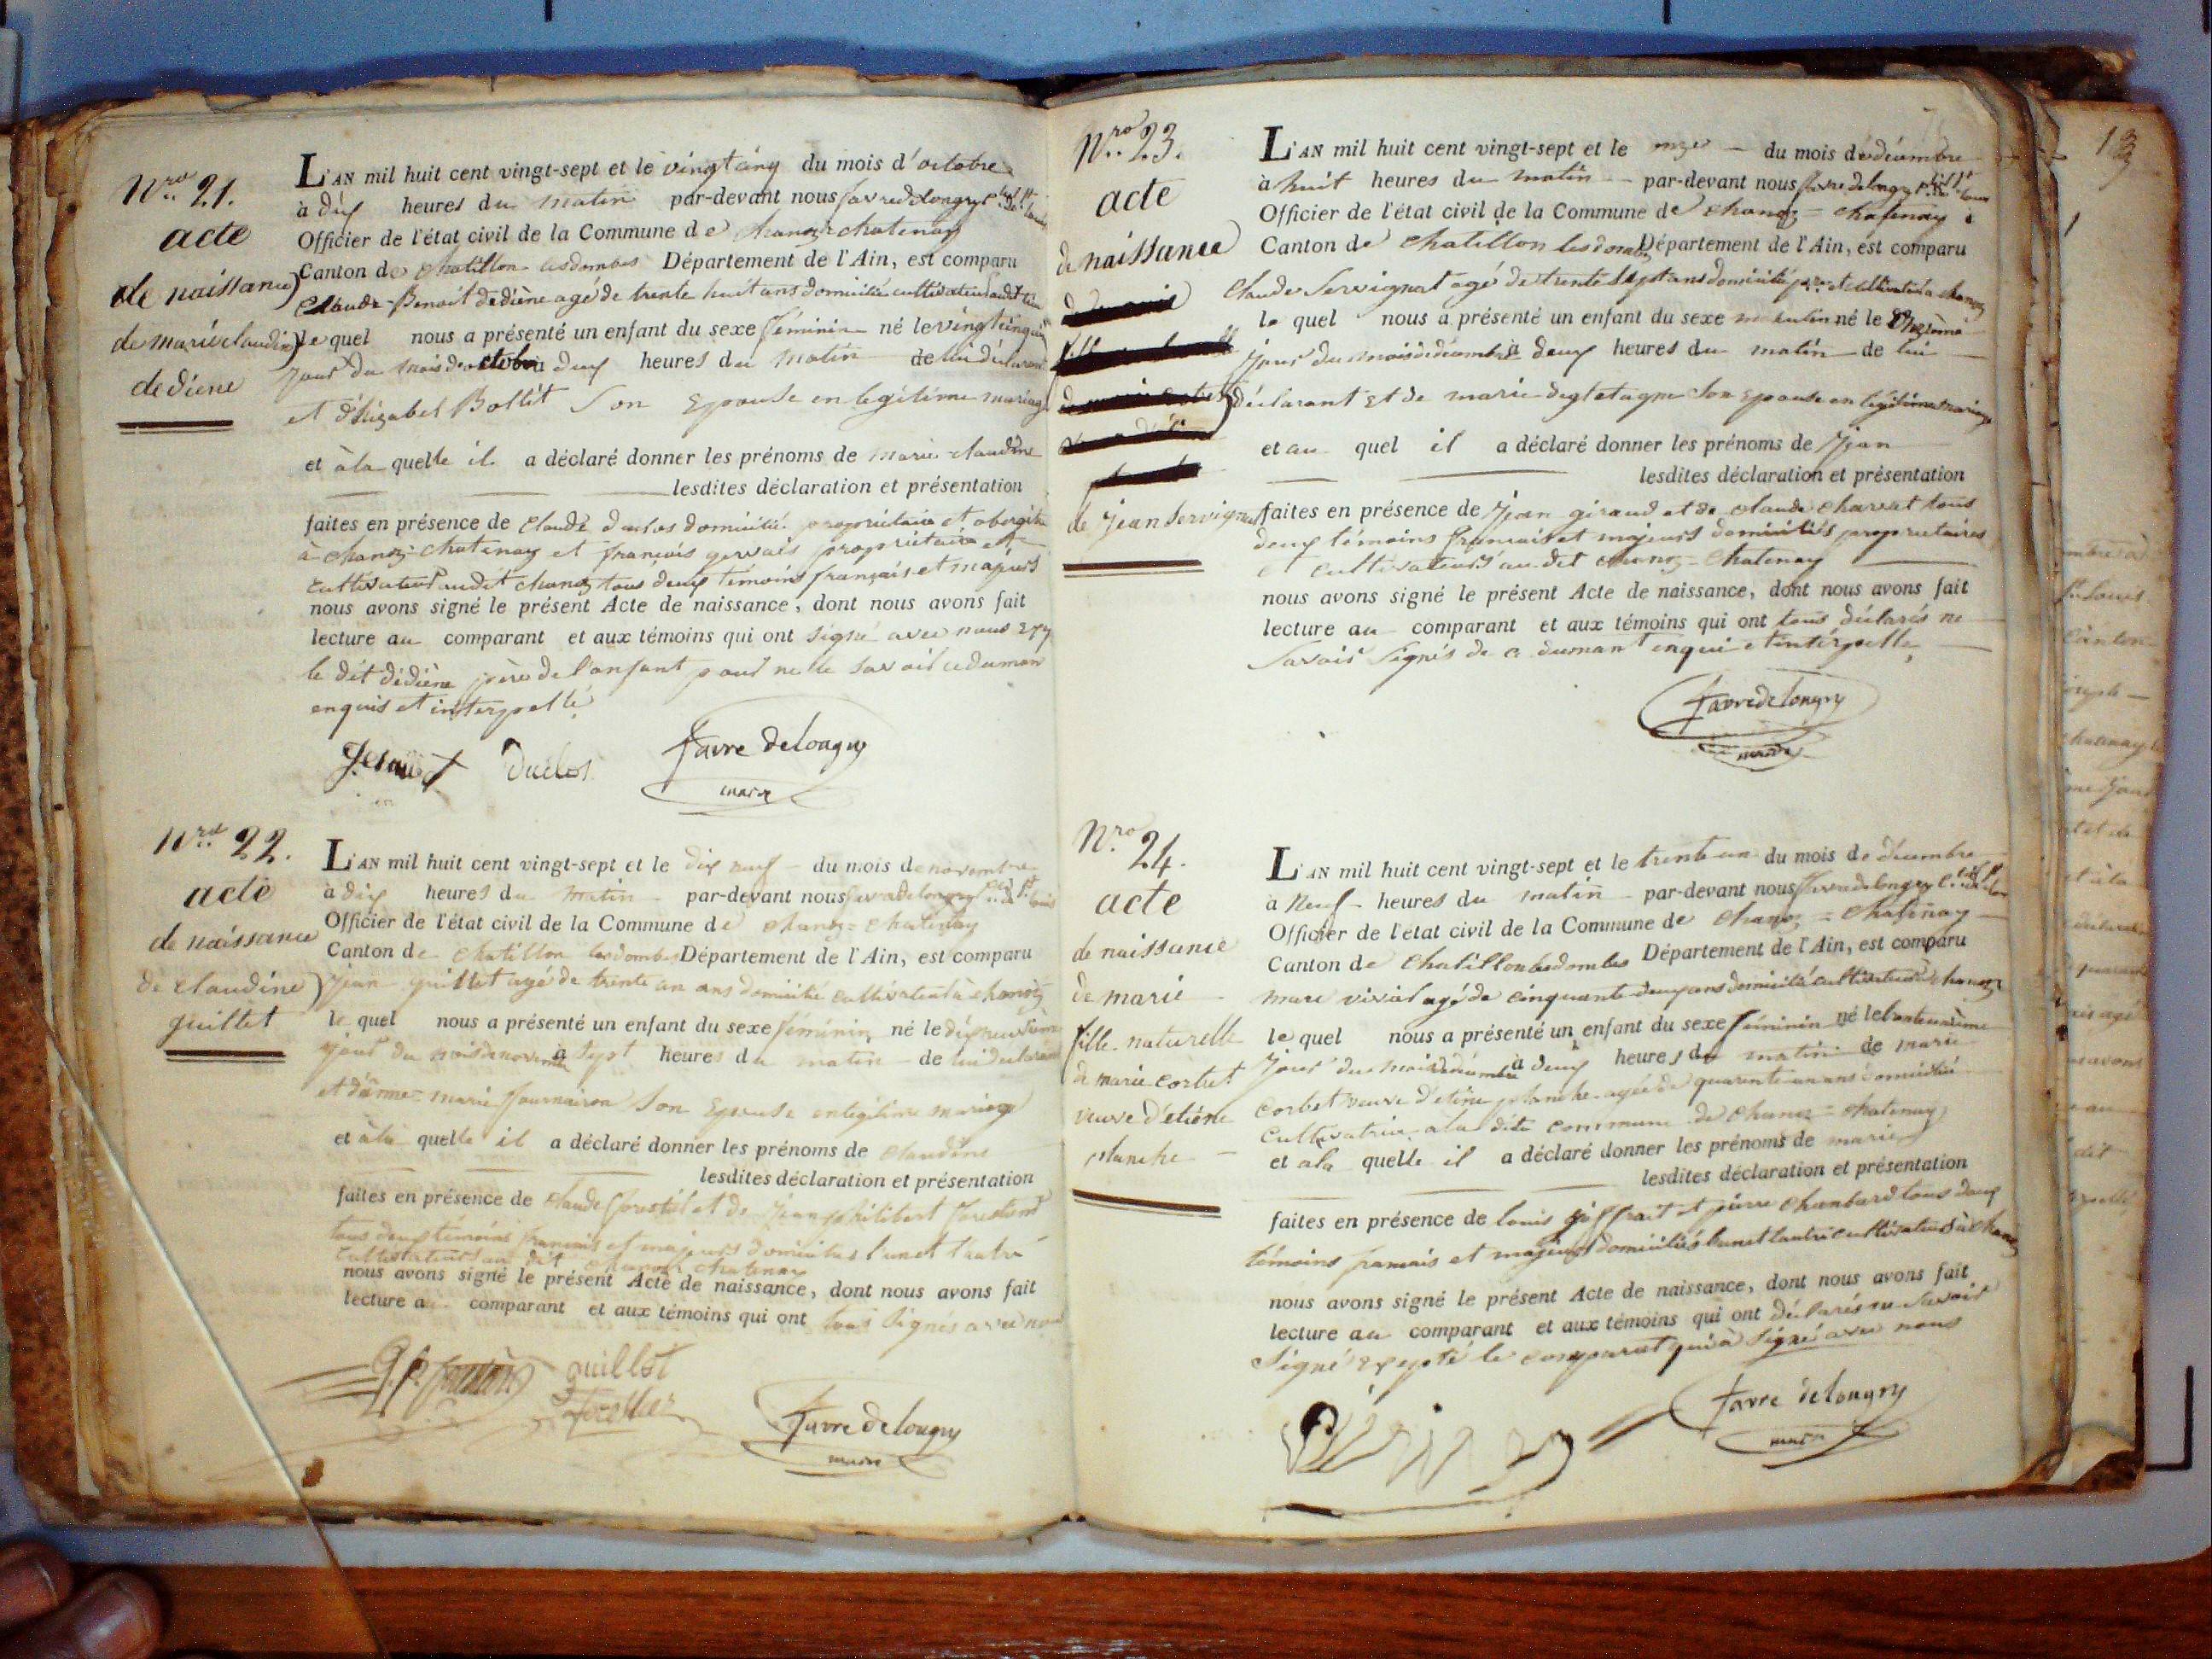 Nro 21.
acte
de naissance
de marie claudine
dediene
L'AN mil huit cent vingt-sept et le vingt cinq du mois d'octobre
à dix heures du matin par-devant nous favre delongry
Officier de l'état civil de la Commune de chanoz-chatenay
Canton de chatillon lesdombes Département de l'Ain, est comparu
Claude-Benoit dediène agé de trente huit ans domicilié cultivateur audit lieu
le quel nous a présenté un enfant du sexe féminin né le vingt cinquième
jour du mois de octobre à deux heures du matin de lui déclarant
et d'élizabet Bollet son Epouse en legitime mariage
et à la quelle il a déclaré donner les prénoms de marie-claudine
lesdites déclaration et présentation
faites en présence de claude duclos domicilié propriétaire et
à chanoz-chatenay et françois gervais propriétaire et
cultivateur audit chanoz tous deux témoins français et majeurs
nous avons signé le présent Acte de naissance, dont nous avons fait
lecture au comparant et aux témoins qui ont signé avec nous
le dit dédiène père de l'enfant pour ne le savoir
enquis et interpellé
Duclos
favre delongry
maire
Nro 22.
acte
de naissance
de claudine
guillet
L'AN mil huit cent vingt-sept et le dix neuf du mois de novembre
à dix heures du matin par-devant nous favre delongry
Officier de l'état civil de la Commune de chanoz-chatenay
Canton de chatillon lesdombes Département de l'Ain, est comparu
jean guillet agé de trente un ans domicilié cultivateur à chanoz
le quel nous a présenté un enfant du sexe féminin né le dix neuvième
jour du mois de novembre à sept heures du matin de lui déclarant
et d'anne-marie fournairon son Epouse en legitime mariage
et à la quelle il a déclaré donner les prénoms de claudine
lesdites déclaration et présentation
faites en présence de claude forestier et de jean philibert
tous deux témoins français et majeurs domiciliés l'un et l'autre
cultivateurs au dit chanoz chatenay
nous avons signé le présent Acte de naissance, dont nous avons fait
lecture au comparant et aux témoins qui ont tous signés avec nous
guillet
favre delongry
maire
Nro 23.
acte
de naissance
de jean Servignat
L'AN mil huit cent vingt-sept et le onze du mois de décembre
à huit heures du matin par-devant nous favre delongry
Officier de l'état civil de la Commune de chanoz-chatenay
Canton de chatillon lesdombes Département de l'Ain, est comparu
claude Servignat agé de trente sept ans domicilié cultivateur à chanoz
le quel nous a présenté un enfant du sexe masculin né le onzième
jour du mois de décembre à deux heures du matin de lui
déclarant et de marie son epouse en légitime mariage
et au quel il a déclaré donner les prénoms de jean
lesdites déclaration et présentation
faites en présence de jean giraud et de claude charvat tous
deux témoins français et majeurs domiciliés proprietaires
et cultivateurs au dit chanoz-chatenay
nous avons signé le présent Acte de naissance, dont nous avons fait
lecture au comparant et aux témoins qui ont tous déclarés ne
savoir signés de ce enquis et interpellé
favre delongry
maire
Nro 24.
acte
de naissance
de marie
fille naturelle
de marie corbet
veuve d'etiene
planche
L'AN mil huit cent vingt-sept et le trente un du mois de décembre
à neuf heures du matin par-devant nous favre delongry
Officier de l'état civil de la Commune de chanoz-chatenay
Canton de chatillon lesdombes Département de l'Ain, est comparu
agé de cinquante deux ans domicilié cultivateur à chanoz
le quel nous a présenté un enfant du sexe féminin né le trente unième
jour du mois de décembre à deux heures du matin de marie
corbet veuve d'etiene planche agée de quarente un ans domiciliée
cultivatrice à la dite commune de chanoz-chatenay
et à la quelle il a déclaré donner les prénoms de marie
lesdites déclaration et présentation
faites en présence de louis et pierre chambard tous deux
témoins français et majeurs domiciliés l'un et l'autre cultivateurs à chanoz
nous avons signé le présent Acte de naissance, dont nous avons fait
lecture au comparant et aux témoins qui ont déclarés ne savoir
signé excepté le comparant qui a signé avec nous
favre delongry
maire